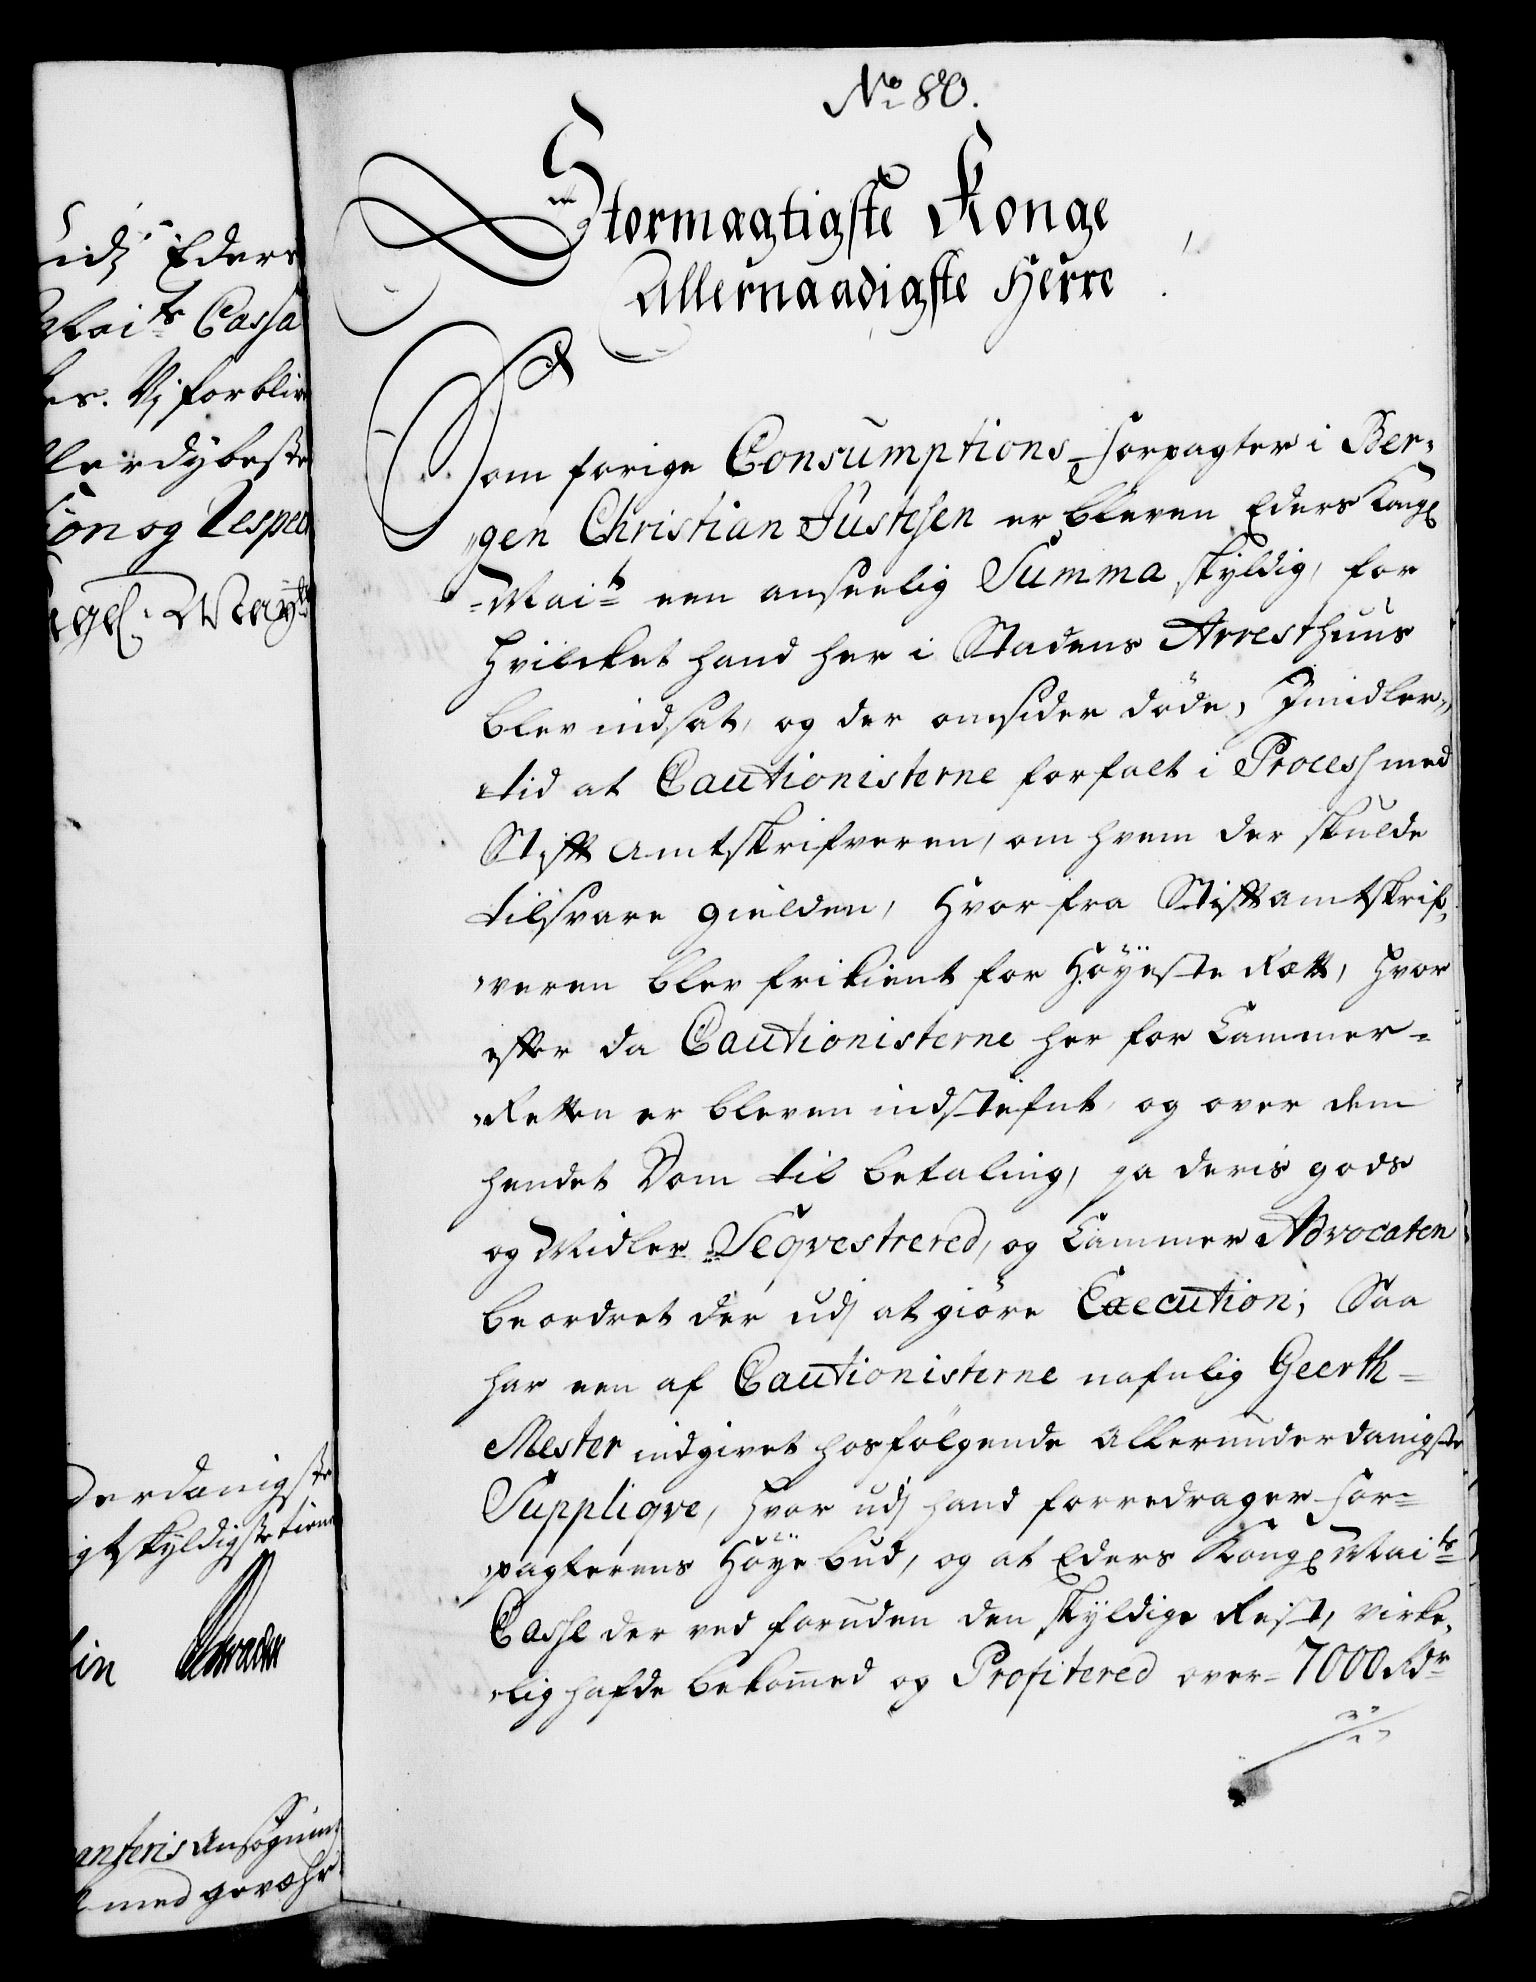 No 80.
Stormagtigste Konge
Allernaadigste Herre
Som forige Consumptions forpagter i Ber,
gen Christian Justesen er bleven Eders Kongl
Maits een anseelig Summa skyldig, for
hvilcket hand her i Stadens Arresthuus
blev indsat, og der omsider döde, Jmidler,
tid at Cautionisterne forfalt i Process med
Stifft amtskrifveren, om hvem der skulde
tilsvare gielden, hvor fra Stifftamtskrif,
veren blev frikient for Höyeste Rætt, hvor
effter da Cautionisterne her for Cammer-
Retten er bleven indstefnt, og over dem
hendet Dom til betaling, pa deris gods
og Midler Seqvestrered, og Cammer Advocaten
beordret der udj at giöre Execution; Saa
har een af Cautionisterne nafnlig Geerth-
Mester indgivet hosfölgende allerunderdanigste
Suppliqve, hvor udj hand forredrager for-
pagterens Höye bud, og at Eders Kongl Maits
Casse der ved foruden den skyldige Rest, virke,
lig hafde bekommed og Profitered over 7000 Rdr
udj Eders
Maits Cassa
es. Vj forblive
llerdybeste
ion og Respect
Kongel: Mayts
derdanigste
gtskyldigste tiene
ansteris Ansögning
med gevæhr